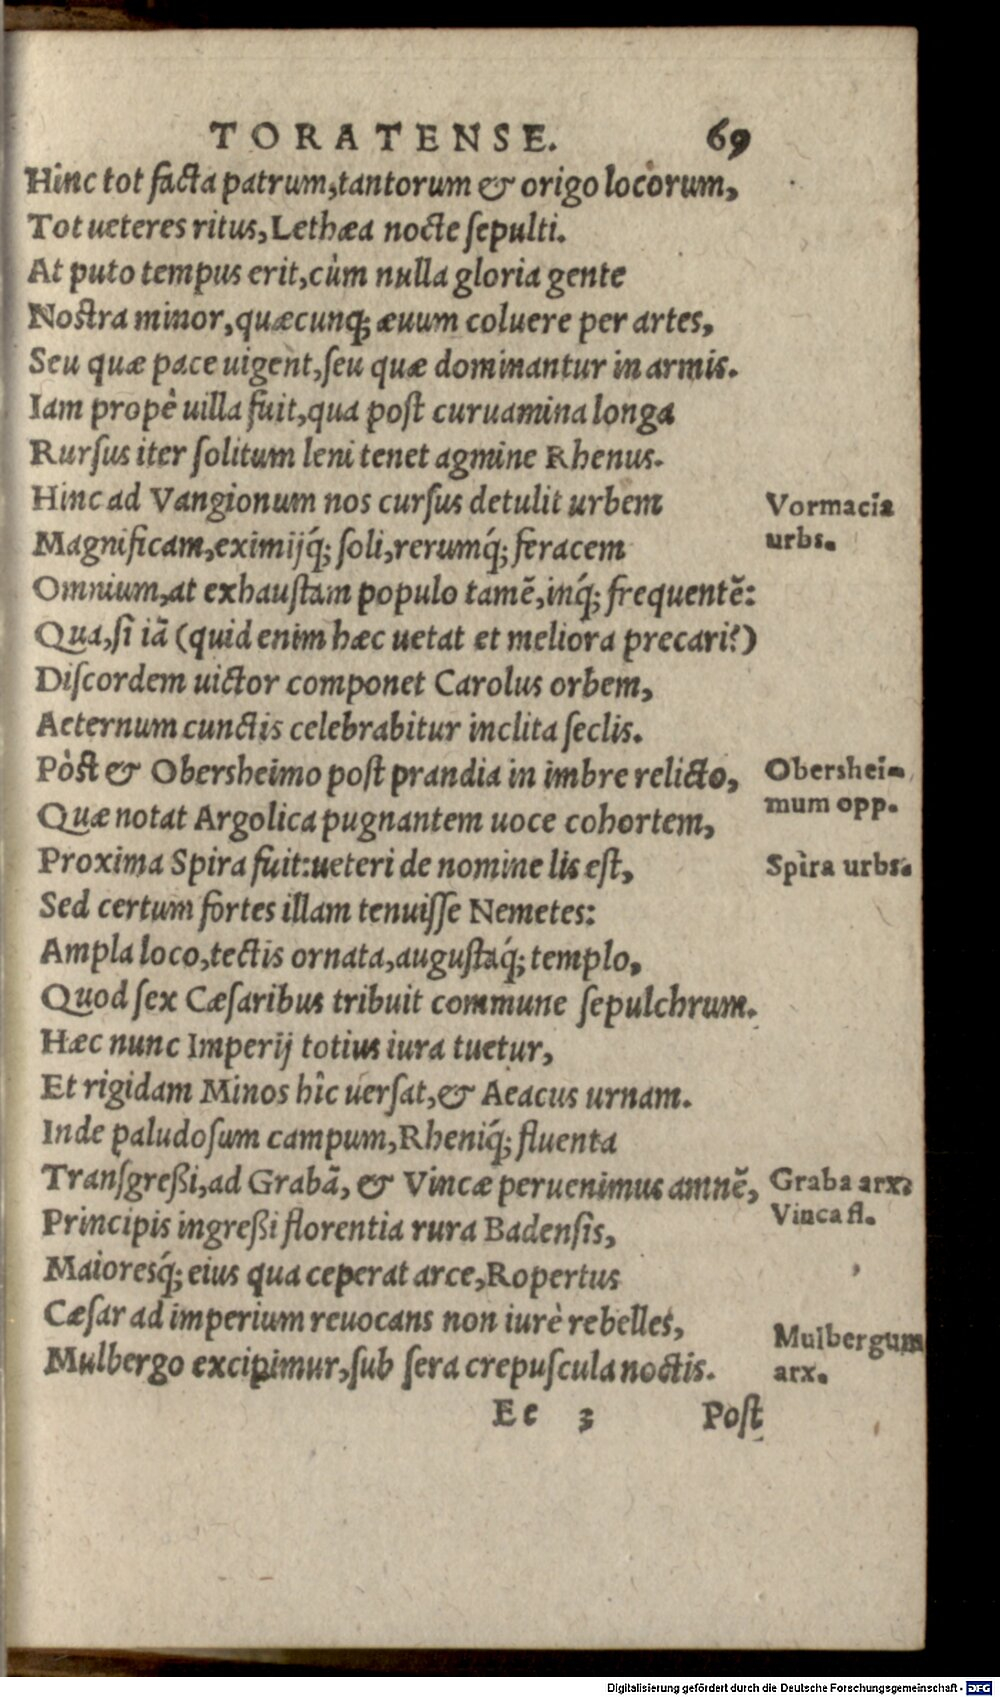 TORATENSE. 69
Hinc tot facta patrum, tantorum & origo locorum,
Tot ueteres ritus, Lethæa nocte sepulti.
At puto tempus erit, cùm nulla gloria gente
Nostra minor, quæcunq; æuum coluere per artes,
Seu quæ pace uigent, seu quæ dominantur in armis.
Iam propè uilla fuit, qua post curuamina longa
Rursus iter solitum leni tenet agmine Rhenus.
Hinc ad Vangionum nos cursus detulit urbem
Vormacia
Magnificam, eximijq́; soli, rerumq́; feracem
urbs.
Omnium, at exhaustam populo tamẽ, inq́; frequentẽ:
Qua, si iã (quid enim hæc uetat et meliora precari?)
Discordem uictor componet Carolus orbem,
Aeternum cunctis celebrabitur inclita seclis.
Pòst & Obersheimo post prandia in imbre relicto,
Obershei-
Quæ notat Argolica pugnantem uoce cohortem,
mum opp.
Proxima Spira fuit: ueteri de nomine lis est,
Spira urbs.
Sed certum fortes illam tenuisse Nemetes:
Ampla loco, tectis ornata, augustaq́; templo,
Quod sex Cæsaribus tribuit commune sepulchrum.
Hæc nunc Imperij totius iura tuetur,
Et rigidam Minos hîc uersat, & Aeacus urnam.
Inde paludosum campum, Rheniq́; fluenta
Transgreßi, ad Grabã, & Vincæ peruenimus amnẽ,
Graba arx.
Principis ingreßi florentia rura Badensis,
Vinca fl.
Maioresq́; eius qua ceperat arce, Ropertus
Cæsar ad imperium reuocans non iurè rebelles,
Mulbergum
Mulbergo excipimur, sub sera crepuscula noctis.
arx.
Ee 3 Post
Digitalisierung gefördert durch die Deutsche Forschungsgemeinschaft - DFG